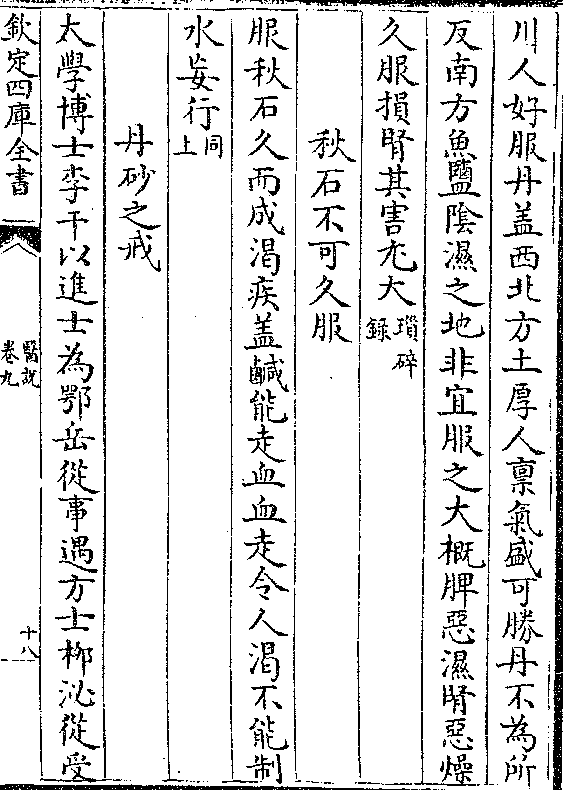 川人好服丹盖西北方土厚人禀氣盛可勝丹不為所
反南方魚鹽陰濕之地非宜服之大概脾惡濕腎惡燥
久服損腎其害尤大瑣碎録
秋石不可久服
服秋石久而成渴疾盖鹹能走血血走令人渴不能制
水妄行同上
丹砂之戒
太學博士李干以進士為鄂岳從事遇方士栁泌從受
欽定四庫全書
醫說
卷九
十八